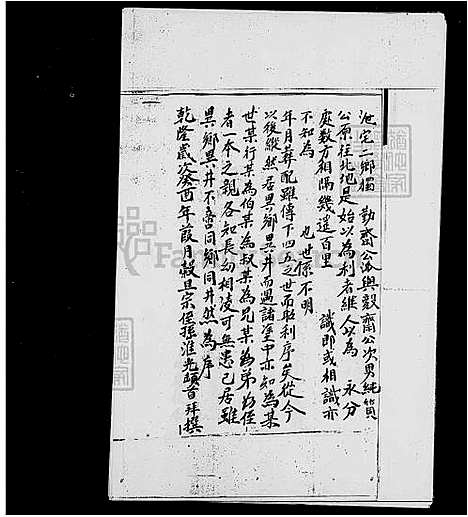 池宅二鄉獨 勤齋公派與毅齋公次男純質
公原往北地是始以為利者維人以為 永分
處数方相隔幾遥百里 識郎或相識亦
不知為 也世係不明
年月葬配雖傳下四五之世而取利序矣從今
以後縱然居異鄉異井而遇諸塗中亦知為某
世某行某為伯某為叔某為兄某為弟為侄
者一本之親各知長幼相凌可無患已居雖
異鄉異井不啻同鄉同井然為序
乾隆歲癸酉年葭月穀旦宗侄孫淮光頓首拜撰